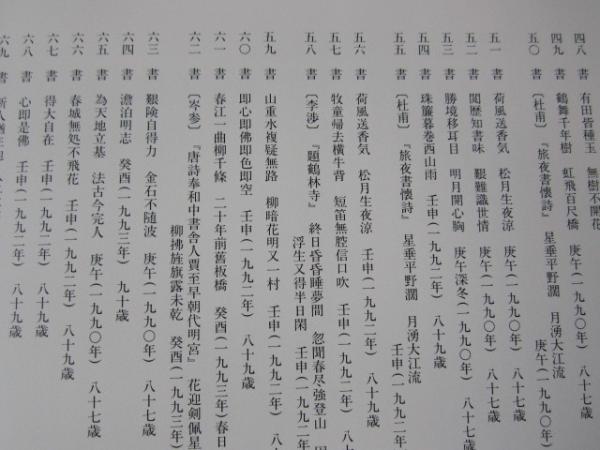 四八　書　有田皆種玉　無樹不開花
四九　書　鶴舞千年樹　虹飛百尺橋　庚午(一九九〇年)
五〇　書　〔杜甫〕　『旅夜書懐詩』　星垂平野濶　月湧大江流
庚午(一九九〇年)
五一　書　荷風送香気　松月生夜涼　庚午(一九九〇年)　八十七歳
五二　書　閲歴知書味　艱難識世情　庚午(一九九〇年)　八十七歳
五三　書　勝境移耳目　明月開心胸　庚午深冬(一九九〇年)　八十七歳
五四　書　珠簾暮巻西山雨　壬申(一九九二年)　八十九歳
五五　書　〔杜甫〕　『旅夜書懐詩』　星垂平野濶　月湧大江流
壬申(一九九二年
五六　書　荷風送香気　松月生夜涼　壬申(一九九二年)　八十九歳
五七　書　牧童帰去横牛背　短笛無腔信口吹　壬申(一九九二年)　八十
五八　書　〔李渉〕　『題鶴林寺』　終日昏昏睡夢間　忽聞春尽強登山
浮生又得半日閑　壬申(一九九二年
五九　書　山重水複疑無路　柳暗花明又一村　壬申(一九九二年)　八
六〇　書　即心即佛即色即空　壬申(一九九二年)　八十九歳
六一　書　春江一曲柳千條　二十年前舊板橋　癸酉(一九九三年)春日
六二　書　〔岑参〕　『唐詩奉和中書舎人賈至早朝代明宮』　花迎剣佩星
柳拂旌旗露未乾　癸酉(一九九三年)
六三　書　艱険自得力　金石不随波　庚午(一九九〇年)　八十七歳
六四　書　澹泊明志　癸酉(一九九三年)　九十歳
六五　書　為天地立基　法古今完人　庚午(一九九〇年)　八十七歳
六六　書　春城無処不飛花　壬申(一九九二年)　八十九歳
六七　書　得大自在　壬申(一九九二年)　八十九歳
六八　書　心即是佛　壬申(一九九二年)　八十九歳
六九　書